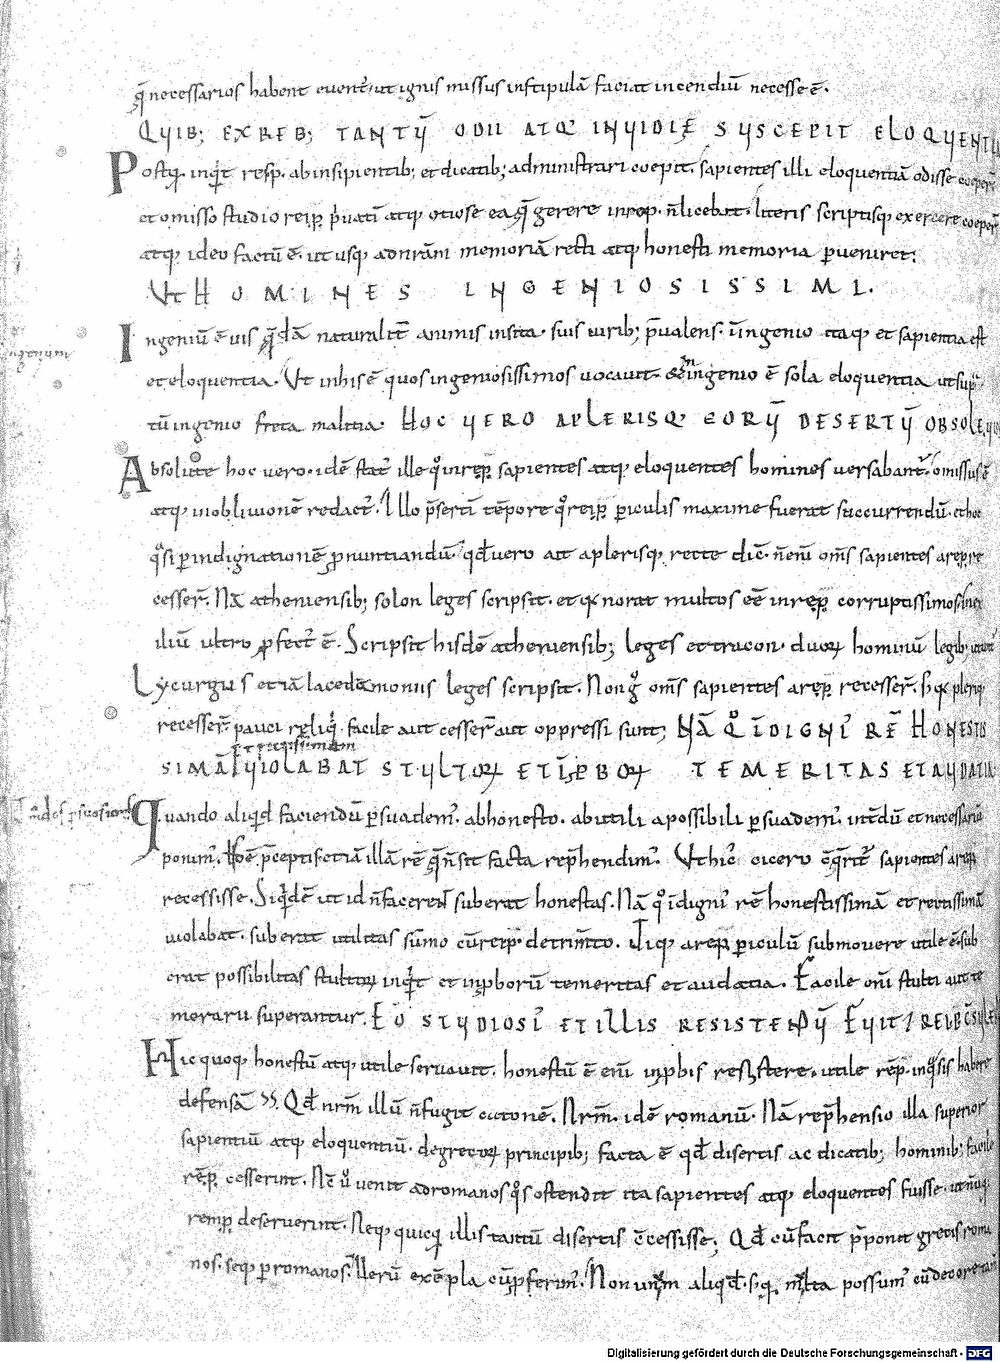 q̄ necessarios habent eventꝰ ut ignis missus in stipulā faciat incendiū necesse ē.
QUIB; EX REB; TANTŪ ODII ATQ' INVIDIĘ SUSCEPIT ELOQUENTIA
Postq̄ inq̇t resp̄. ab insipientib; et dicatib; administrari coepit. sapientes illi eloquentiā odisse coeper̄
et omisso studio reip̄. p̄vati atq; otiose ea q̄ gerere in rep̄. n̄ licebat. literis scriptisq; exercere coeper̄
atq; ideo factū ē. ut usq; ad nr̄am memoriā recti atq; honesti memoria p̱veniret:
UT HOMINES INGENIOSISSIMI.
Ingeniū ē vis q̄dā naturalit̄ animis insita. suis virib; p̄valens. itaq; et sapientia est
ingenium
et eloquentia. Ut in his ē quos ingeniosissimos vocavit. ingenio ē sola eloquentia ut sup̄
tū ingenio freta malitia. HOC VERO A PLERISQ' EORŪ DESERTŪ OBSOLE
Absolute hoc vero. idē statꝰ ille q̊ in rep̄. sapientes atq; eloquentes homines versabant̄. omissus ē
atq; in oblivionē redactꝰ. Illo p̄sertī tēpore q̊ reip̄. p̱iculis maxime fuerat succurrendū. et hoc
q̊si p̱ indignationē p̄nuntiandū. qđ vero ait a plerisq; recte dic̄. n̄ enī om̄s sapientes a rep̄. re
cesser̄. Nā atheniensib; solon leges scripsit. et norat multos eē in rep̄. corruptissimos.
iliū ultro p̄fectꝰ ē. Scripsit hisdē atheniensib; leges et tracon. duoꝝ hominū legib;
Lycurgus etiā lacedęmoniis leges scripsit. Non om̄s sapientes a rep̄. recesser̄. pleriq;
recesser̄. pauci reliq̇. facile aut cesser̄ aut oppressi sunt; NĀ Q̊ ĪDIGNIꝰ RĒ HONESTIS
et rectissimam
SIMĀ VIOLABAT STULTOꝝ ET ĪP̄BOꝝ TEMERITAS ET AUDATIA
Quando aliq̇d faciendū p̱suademꝰ. ab honesto. ab utili a possibili p̱suademꝰ. int̄dū et necessariū
ponimꝰ. p̄cepti etiā illā rē q̄ n̄ sit facta rep̄hendimꝰ. Ut hic cicero c̄q̄rit̄ sapientes a rep̄.
recessisse. Siq̇dē ut id n̄ facerent suberat honestas. Nā q̊ īdigniꝰ rē honestissimā et rectissimā
violabat. suberat utilitas sūmo cū reip̄. detrim̄to. Itaq; a rep̄. p̱iculū submovere utile ē. sub
erat possibilitas stultoꝝ inq̇t et inp̄borū temeritas et audatia. Facile enī stulti aut te
merarii superantur. EO STUDIOSIꝰ ET ILLIS RESISTENDŪ FUIT
Hic quoq; honestū atq; utile servavit. honestū ē enī inp̄bis resistere. utile rēp̄. habere
defensā. Qđ nr̄m illū n̄ fugit catonē. Nr̄m. idē romanū. Nā rep̄hensio illa superior
sapientiū atq; eloquentiū. de grecoꝝ principib; facta ē qđ disertis ac dicatib; hominib; facile
rēp̄. cesserint. venit ad romanos q̊s ostendit ita sapientes atq; eloquentes fuisse.
remp̄. deseruerint. Neq; quicq̄ illis tantū disertis c̄cessisse. Qđ cū facit p̄ponit grecis roma
nos. seq; p̱ romanos. exēpla cūp̱ferimꝰ. Non aliq̇d. possumꝰ
Digitalisierung gefördert durch die Deutsche Forschungsgemeinschaft - DFG